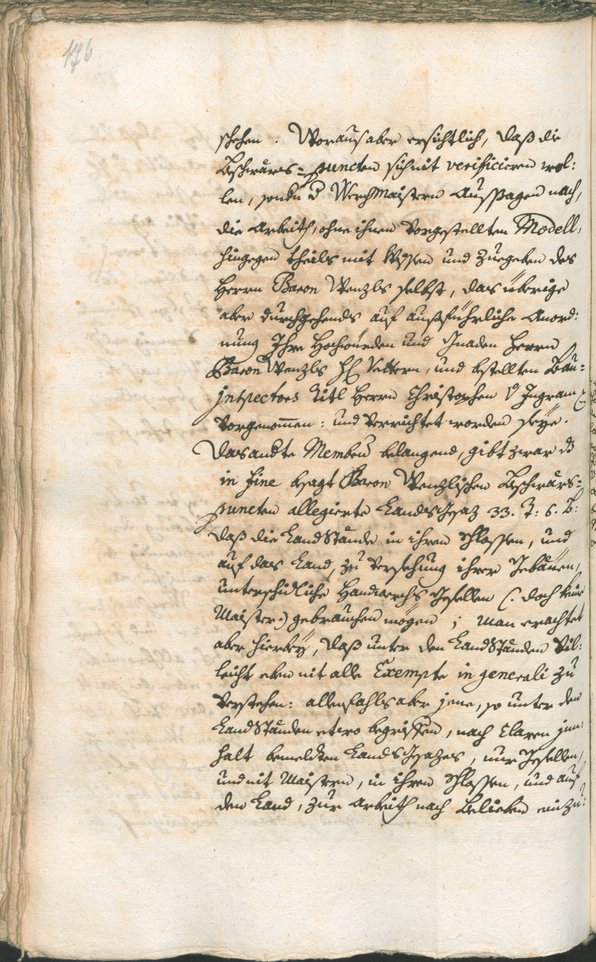 176
stehen. Woraus aber ersichtlich, daß die
Beschwärs=puncten sich nit verificieren wol:
len, sondern d Werchmaistern Aussagen nach,
die Arbeith, ohne ihnen vorgestellten Modell,
hingegen theils mit Wissen und Zuegeben des
Herrn Baron Wenzls selbst, das überige
aber durchgehends auf ausführliche Anord:
nung Ihro Hochwürden und Gnaden Herrn
Baron Wenzls H. Vettern, und bestellten Bau=
inspectors Titl Herrn Christophen v Ingram
vorgenommen: und verrichtet worden seye.
Das andte Membru belangend, gibt zwar d
in fine besagt Baron Wenzlischen Beschwärs=
puncten allegierte Landsgsaz 33. T: 6. B:
daß die Landstände in ihren Schlossen, und
auf das Land, zu Versehung ihrer Gebäuen,
unterschidliche Handwerchs Gesellen (: doch keine
Maister:) gebrauchen mögen; man erachtet
aber hierbey, daß unter den Landständen vil:
leicht eben nit alle Exempte in generali zu
verstehen: allenfahls aber jene, so unter den
Landständen etwo begriffen, nach Claren jnn:
halt bemelten Landsgsazes, nur Gesellen,
und nit Maistern, in ihren Schlossen, und auf
dem Land, zur Arbeith nach Belieben einzu: